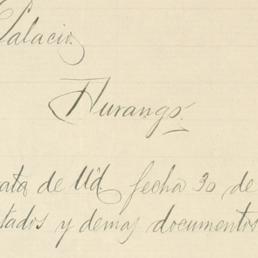 Palacio.
Durango.
ata de Ud fecha 30 de
tados y demas documentos